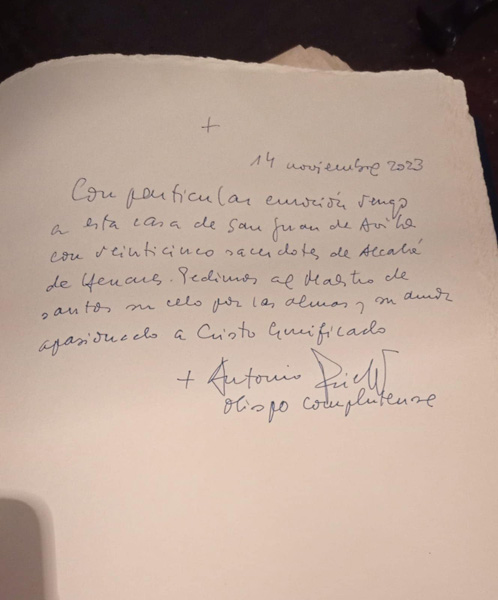 +
14 noviembre 2023
Con particular emoción vengo
a esta casa de San Juan de Avila
con veinticinco sacerdotes de Alcalá
de Henares. Pedimos al Maestro de
santos su celo por las almas y su amor
apasionado a Cristo Crucificado
+ Antonio
Obispo Complutense